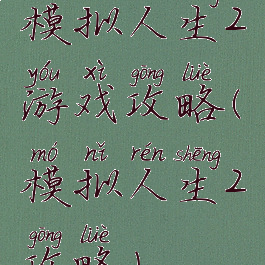 模拟人生2
yóu xì gōng lüè
游戏攻略(
mó nǐ rén shēng
模拟人生2
gōng lüè
攻略)